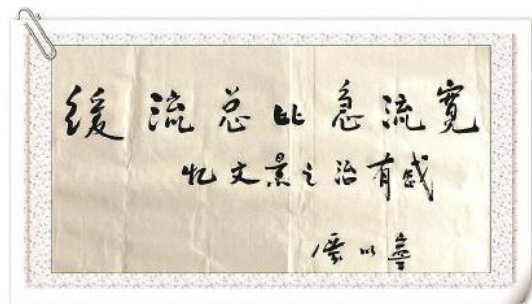 缓流总比急流寬
忆文景之治有感
以